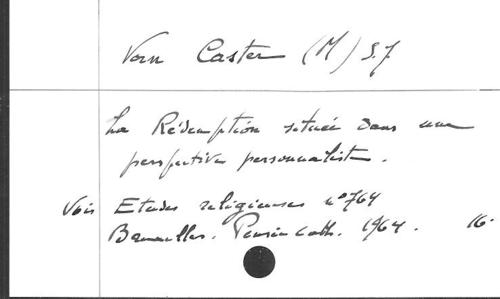 Van Caster (M) S.J
La Rédemption située dans une
perspective personnaliste.
Voir Etudes religieuses n° 764
Bruxelles. Pensée cath. 1964. 16.